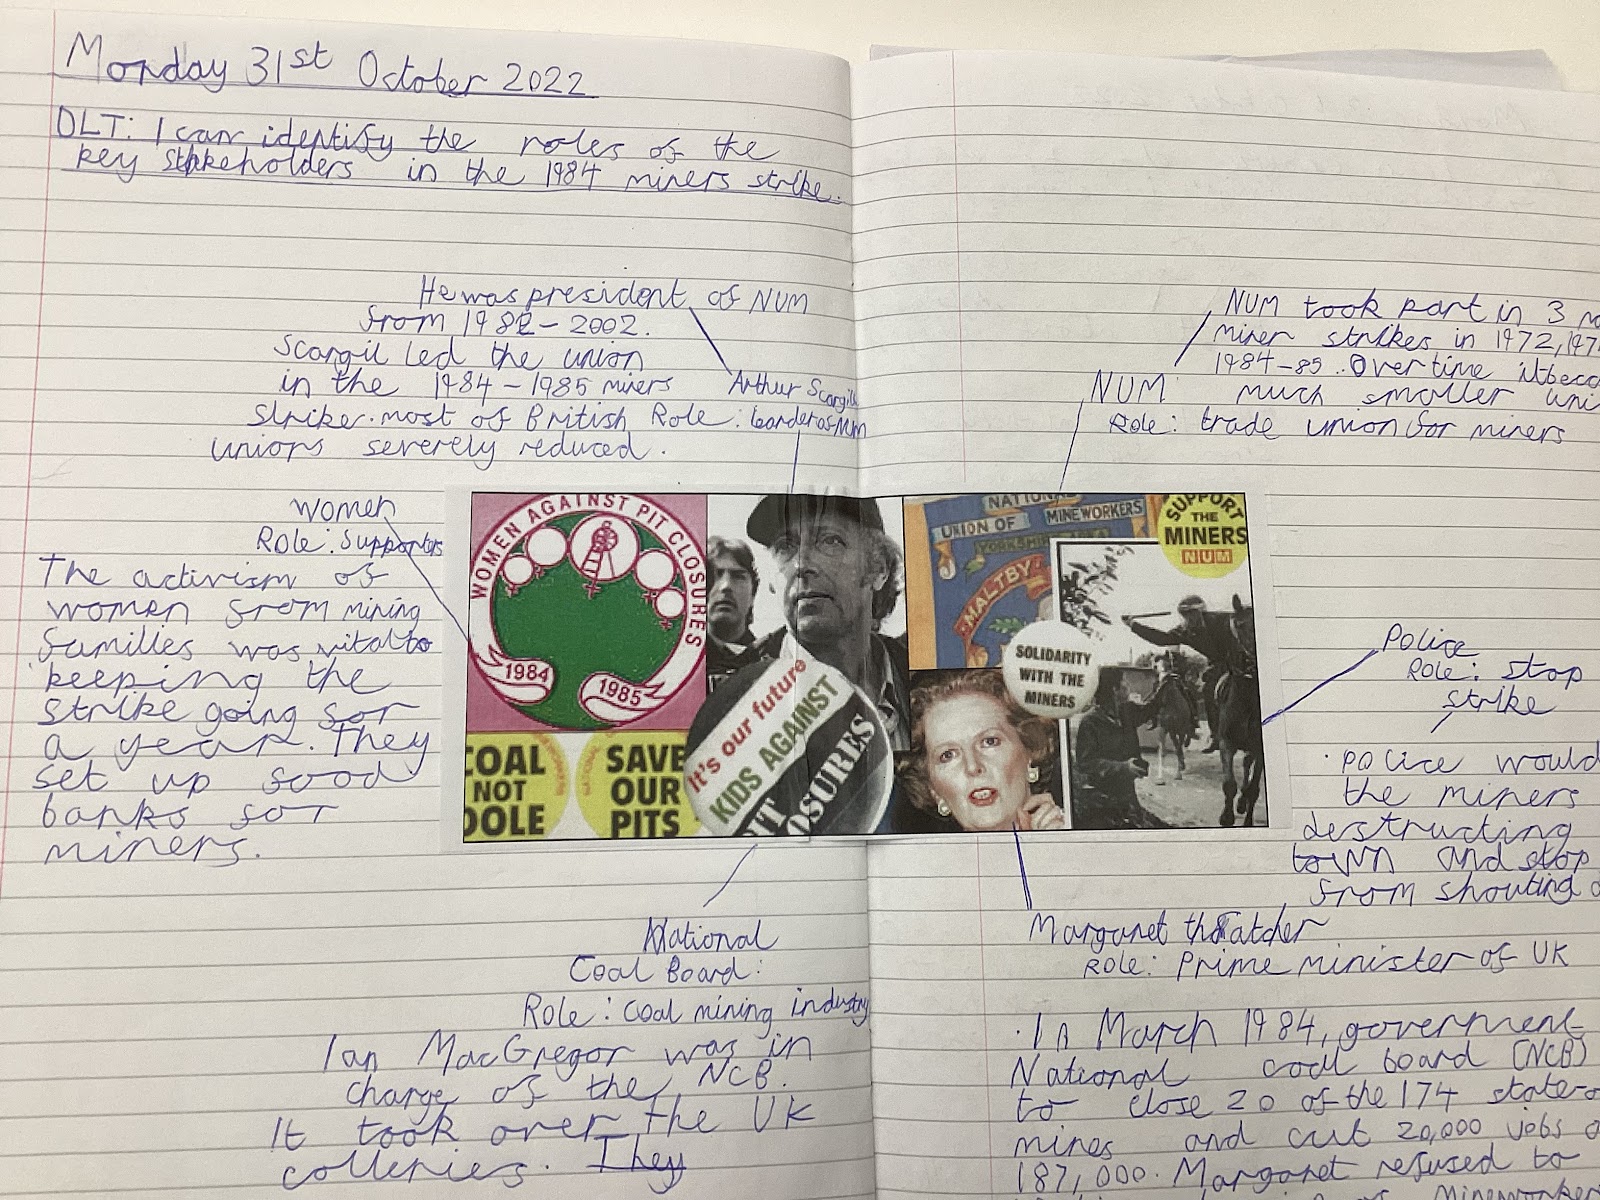 Monday 31st October 2022
DLT: I can identify the roles of the
key stakeholders in the 1984 miners strike.
He was president of NUM
from 1982-2002.
Scargil led the union
in the 1984-1985 miners
strike. most of British
unions severely reduced.
Arthur Scargill
Role:
Women
Role: Supporters
The activism of
women from mining
families was vital to
keeping the
strike going for
a year. They
set up food
banks for
miners.
National
Coal Board:
Role: Coal mining industry
Ian MacGregor was in
charge of the NCB.
It took over the UK
colleries. They
NUM took part in 3
miner strikes in 1972, 197
1984-85. Over time it beca
much smaller uni
NUM
Role: trade union for miners
Police
Role: stop
strike
· Police would
the miners
destructing
town and stop
from shouting
Margaret Thatcher
Role: Prime minister of UK
· In March 1984, government
National coal board (NCB)
to close 20 of the 174 state-o
mines and cut 20,000 jobs o
187,000. Margaret refused to
Mineworker
WOMEN AGAINST PIT CLOSURES
1984
1985
COAL
NOT
DOLE
SAVE
OUR
PITS
It's our future
KIDS AGAINST
PIT
CLOSURES
NATIONAL
UNION OF MINEWORKERS
YORKSHIRE
MALTBY
SUPPORT
THE
MINERS
NUM
SOLIDARITY
WITH THE
MINERS